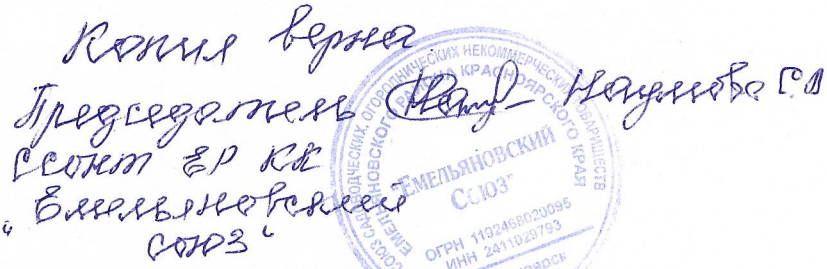 Копия верна
Председатель Наумова С.А
ССОНТ ЕР КК
"Емельяновский
союз"
СОЮЗ САДОВОДЧЕСКИХ, ОГОРОДНИЧЕСКИХ НЕКОММЕРЧЕСКИХ ТОВАРИЩЕСТВ
ЕМЕЛЬЯНОВСКОГО РАЙОНА КРАСНОЯРСКОГО КРАЯ
"ЕМЕЛЬЯНОВСКИЙ
СОЮЗ"
ОГРН 1192468020095
ИНН 2411029793